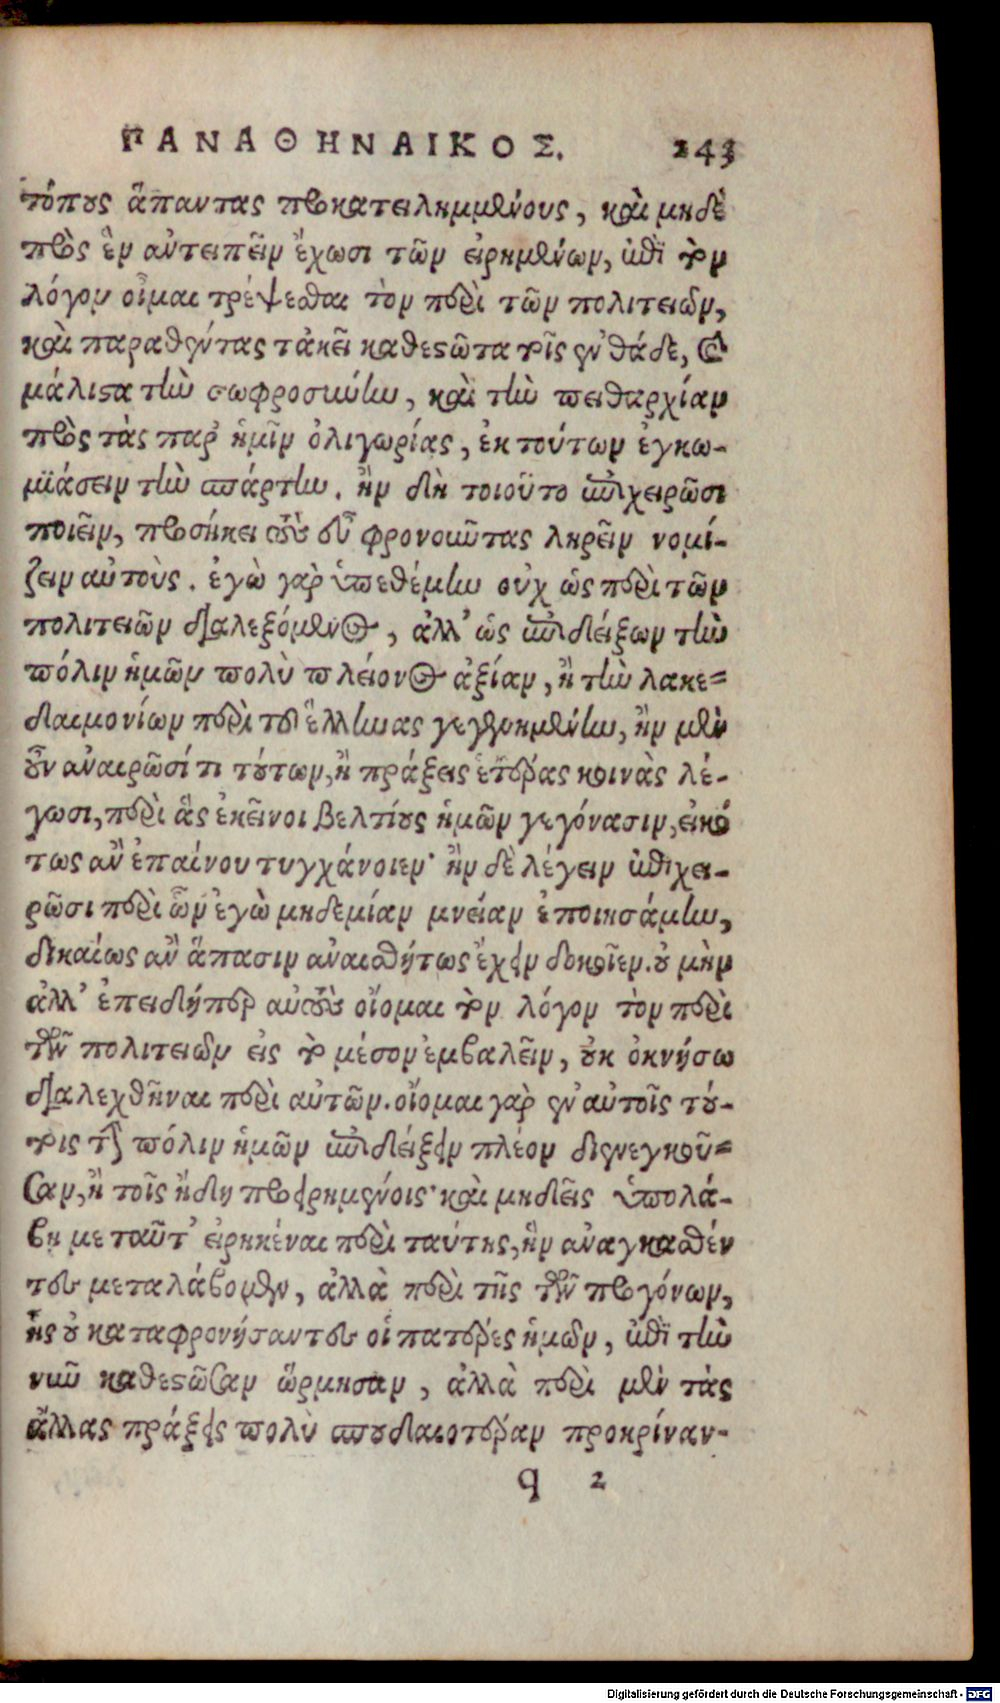 ΠΑΝΑΘΗΝΑΙΚΟΣ. 243
τόπους ἅπαντας προκατειλημμένους, καὶ μηδὲ
πρὸς ἓν ἀντειπεῖν ἔχωσι τῶν εἰρημένων, ἐπὶ τὸν
λόγον οἶμαι τρέψεσθαι τὸν περὶ τῶν πολιτειῶν,
καὶ παραθέντας τἀκεῖ καθεστῶτα τοῖς ἐνθάδε, καὶ
μάλιστα τὴν σωφροσύνην, καὶ τὴν πειθαρχίαν
πρὸς τὰς παρ' ἡμῖν ὀλιγωρίας, ἐκ τούτων ἐγκω-
μιάσειν τὴν σπάρτην. ἢν δὴ τοιοῦτο ἐπιχειρῶσι
ποιεῖν, προσήκει τοὺς εὖ φρονοῦντας ληρεῖν νομί-
ζειν αὐτοὺς. ἐγὼ γὰρ ὑπεθέμην οὐχ ὡς περὶ τῶν
πολιτειῶν διαλεξόμενος, ἀλλ' ὡς ἐπιδείξων τὴν
πόλιν ἡμῶν πολὺ πλείονος ἀξίαν, ἢ τὴν λακε-
δαιμονίων περὶ τοὺς ἕλληνας γεγενημένην, ἢν μὲν
οὖν ἀναιρῶσί τι τούτων, ἢ πράξεις ἑτέρας κοινὰς λέ-
γωσι, περὶ ἃς ἐκεῖνοι βελτίους ἡμῶν γεγόνασιν, εἰκό
τως ἂν ἐπαίνου τυγχάνοιεν· ἢν δὲ λέγειν ἐπιχει-
ρῶσι περὶ ὧν ἐγὼ μηδεμίαν μνείαν ἐποιησάμην,
δικαίως ἂν ἅπασιν ἀναισθήτως ἔχειν δοκοῖεν. οὐ μὴν
ἀλλ' ἐπειδήπερ αὐτοὺς οἴομαι τὸν λόγον τὸν περὶ
τῶν πολιτειῶν εἰς τὸ μέσον ἐμβαλεῖν, οὐκ ὀκνήσω
διαλεχθῆναι περὶ αὐτῶν. οἴομαι γὰρ ἐν αὐτοῖς τού-
τοις τὴν πόλιν ἡμῶν ἐπιδείξειν πλέον διενεγκοῦ-
σαν, ἢ τοῖς ἤδη προειρημένοις· καὶ μηδεὶς ὑπολά-
βῃ με ταῦτ' εἰρηκέναι περὶ ταύτης, ἣν ἀναγκασθέν
τες μεταλάβομεν, ἀλλὰ περὶ τῆς τῶν προγόνων,
ἧς οὐ καταφρονήσαντες οἱ πατέρες ἡμῶν, ἐπὶ τὴν
νῦν καθεστῶσαν ὥρμησαν, ἀλλὰ περὶ μὲν τὰς
ἄλλας πράξεις πολὺ σπουδαιοτέραν προκρίναν-
q 2
Digitalisierung gefördert durch die Deutsche Forschungsgemeinschaft - DFG